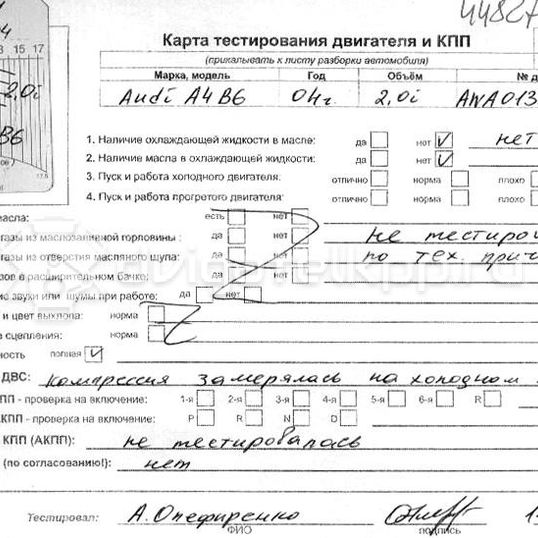 44827
Карта тестирования двигателя и КПП
(прикалывать к листу разборки автомобиля)
Марка, модель Год Объём № д
Audi A4 B6 04г. 2,0i AWA013
15 17
2,0i
B6
1. Наличие охлаждающей жидкости в масле: да нет нет
2. Наличие масла в охлаждающей жидкости: да нет
3. Пуск и работа холодного двигателя: отлично норма плохо
4. Пуск и работа прогретого двигателя: отлично норма плохо
масла: есть нет
газы из маслозаливной горловины : да нет не тестиро
газы из отверстия масляного щупа: да нет по тех. прич
зов в расширительном бачке: да нет
ие звуки или шумы при работе: да нет
и цвет выхлопа: норма
в сцепления: норма
ность полная
ДВС: компрессия замерялась на холодном
ПП - проверка на включение: 1-я 2-я 3-я 4-я 5-я 6-я R
КПП - проверка на включение: P R N D
КПП (АКПП): не тестировалась
(по согласованию!): нет
Тестировал: А. Опефиренко
ФИО подпись